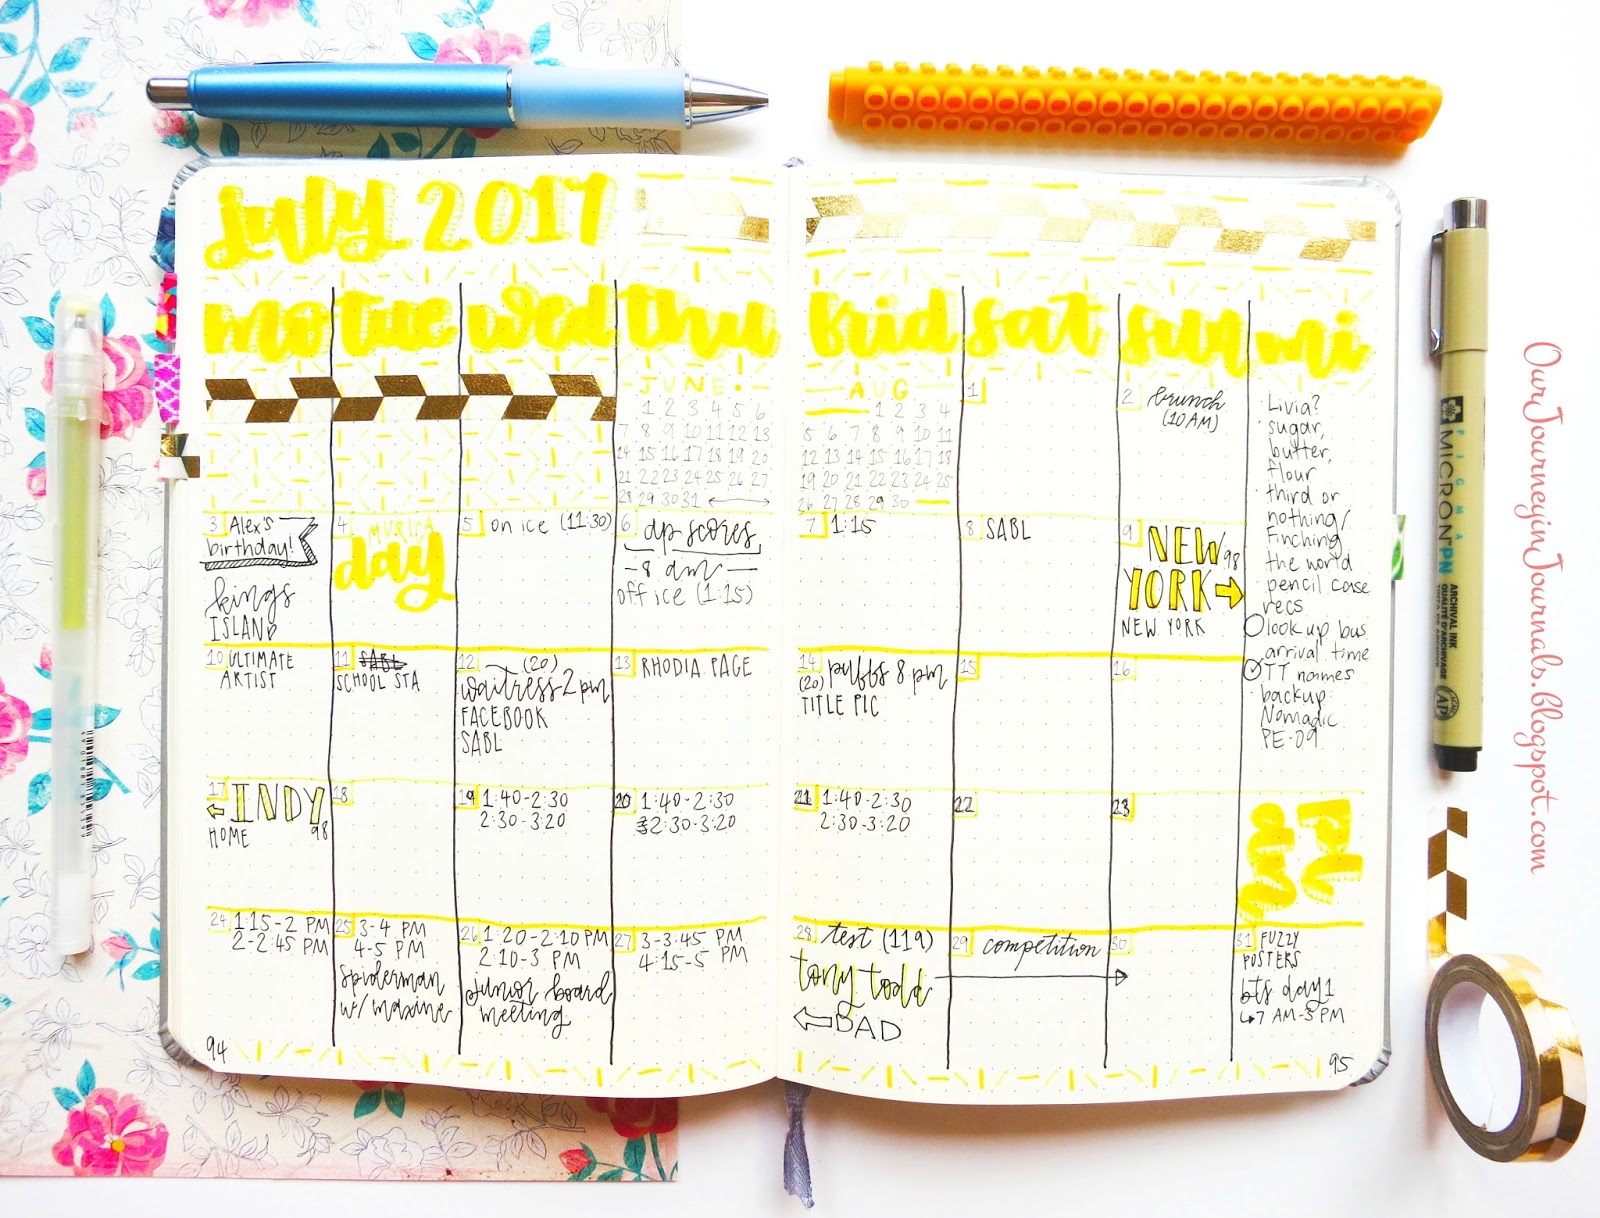 july 2017
mo tue wed thu frid sat sun mi
JUNE
1 2 3 4 5 6
7 8 9 10 11 12 13
14 15 16 17 18 19 20
21 22 23 24 25 26 27
28 29 30 31
AUG
1 2 3 4
5 6 7 8 9 10 11
12 13 14 15 16 17 18
19 20 21 22 23 24 25
26 27 28 29 30
1
2 brunch
(10 AM)
3 Alex's
birthday!
kings
ISLAND
4 MURICA
day
5 on ice (11:30)
6 ap scores
8 am
office (1:15)
7 1:15
8 SABL
9 NEW 98
YORK
NEW YORK
10 ULTIMATE
ARTIST
11 SABL
SCHOOL STA
12 (20)
waitress 2 pm
FACEBOOK
SABL
13 RHODIA PAGE
14 puffs 8 pm
(20)
TITLE PIC
15
16
17 INDY
HOME 98
18
19 1:40-2:30
2:30-3:20
20 1:40-2:30
2:30-3:20
21 1:40-2:30
2:30-3:20
22
23
24 1:15-2 PM
2-2:45 PM
25 3-4 PM
4-5 PM
spiderman
w/ maxine
26 1:20-2:10 PM
2:10-3 PM
junior board
meeting
27 3-3:45 PM
4:15-5 PM
28 test (119)
tony todd
DAD
29 competition
30
31 FUZZY
POSTERS
bts day 1
7 AM-3 PM
Livia?
sugar,
butter,
flour
third or
nothing/
Finching
the world
pencil case
recs
look up bus
arrival time
TT names
backup
Nomadic
PE-09
94
95
PIGMA
MICRON PN
ARCHIVAL INK
OurJourneyinJournals.blogspot.com